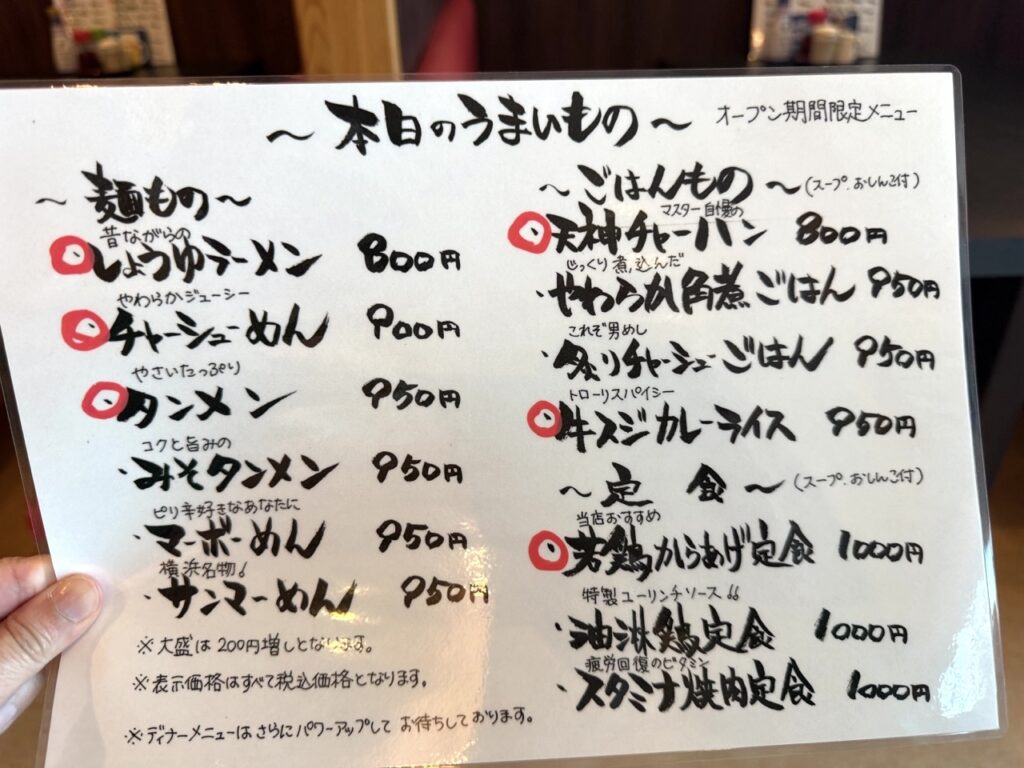 ～ 本日のうまいもの ～
オープン期間限定メニュー
～ 麺もの ～
昔ながらの
しょうゆラーメン 800円
やわらかジューシー
チャーシューめん 900円
やさいたっぷり
タンメン 950円
コクと旨みの
・みそタンメン 950円
ピリ辛好きなあなたに
・マーボーめん 950円
横浜名物
・サンマーめん 950円
※大盛は200円増しとなります。
※表示価格はすべて税込価格となります。
※ディナーメニューはさらにパワーアップして お待ちしております。
～ ごはんもの ～ (スープ.おしんこ付)
マスター自慢の
天神チャーハン 800円
じっくり煮込んだ
・やわらか角煮ごはん 950円
これぞ男めし
・炙りチャーシューごはん 950円
トローリスパイシー
牛スジカレーライス 950円
～ 定食 ～ (スープ.おしんこ付)
当店おすすめ
若鶏からあげ定食 1000円
特製ユーリンチソース
・油淋鶏定食 1000円
疲労回復のビタミン
・スタミナ焼肉定食 1000円